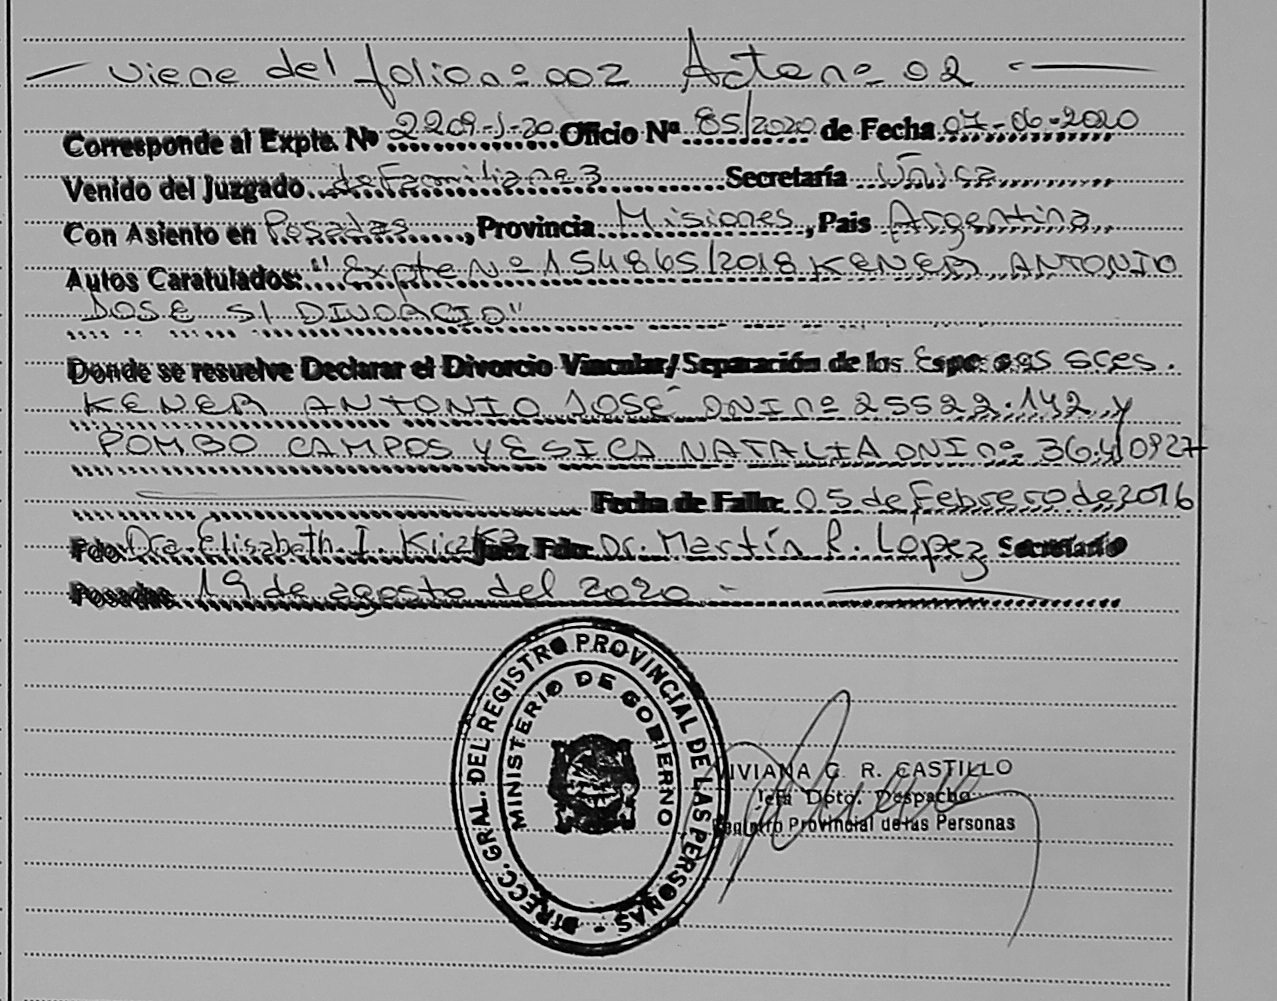 — viene del folio nº 002 Acta nº 02 —
Corresponde al Expte. Nº 2209-J-20 Oficio Nª 85/2020 de Fecha 07-06-2020
Venido del Juzgado de Familia ne 3 Secretaría Única
Con Asiento en Posadas, Provincia Misiones, Pais Argentina
Autos Caratulados: "Expte Nº 154865/2018 KENER ANTONIO
JOSE S/ DIVORCIO"
Donde se resuelve Declarar el Divorcio Vincular/Separación de los Esposos sres.
KENER ANTONIO JOSÉ DNI nº 25522.142 y
POMBO CAMPOS YESICA NATALIA DNI nº
Fecha de Fallo: 05 de Febrero de 2016
Fdo: Dra. Elisabeth. I. Juez Fdo: Dr. Martín R. López Secretario
Posadas 19 de agosto del 2020 -
DIRECC. GRAL. DEL REGISTRO PROVINCIAL DE LAS PERSONAS -
MINISTERIO DE GOBIERNO
VIVIANA G. R. CASTILLO
Jefa Dpto. Despacho
Registro Provincial de las Personas